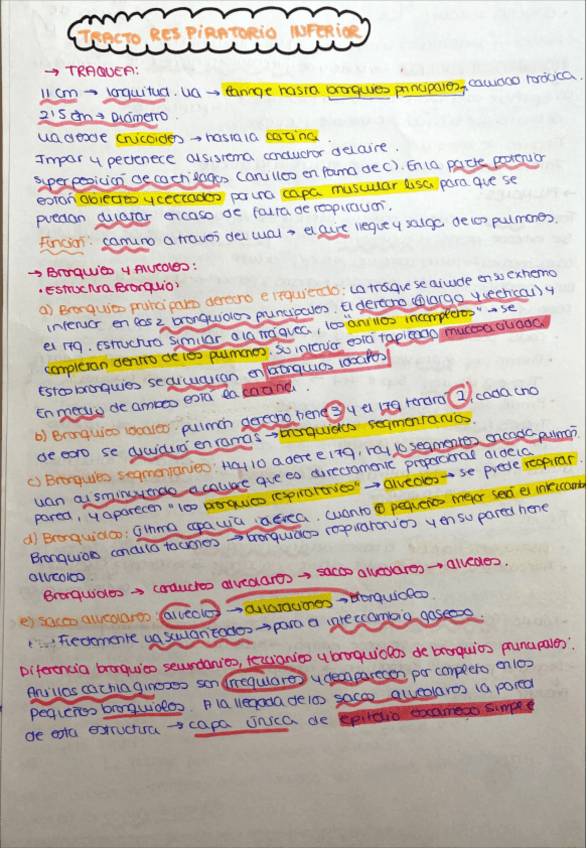 TRACTO RESPIRATORIO INFERIOR
→ TRAQUEA:
11 cm → longitud. va → faringe hasta bronquios principales, cavidad torácica.
2'5 cm → Diámetro.
va desde cricoides → hasta la carina.
Impar y pertenece al sistema conductor del aire.
superposición de cartílagos (anillos en forma de c). En la parte posterior
están abiertos y cerrados por una capa muscular lisa para que se
puedan dilatar en caso de falta de respiración.
Función: camino a través del cual → el aire llegue y salga de los pulmones.
→ Bronquios y Alveolos:
• Estructura Bronquio:
a) Bronquios principales derecho e izquierdo: La tráquea se divide en su extremo
inferior en los 2 bronquiolos principales. El derecho (+largo y vertical) y
el izq. estructura similar a la tráquea, los "anillos incompletos" → se
completan dentro de los pulmones. Su interior está tapizado mucosa ciliada
Estos bronquios se dividirán en bronquios lobares
En medio de ambos está la carina.
b) Bronquios lobares: pulmón derecho tiene 3 y el izq tendrá 2, cada uno
de esto se dividirá en ramas → bronquiolos segmentarios.
c) Bronquios segmentarios: Hay 10 a dere e izq, hay 10 segmentos en cada pulmón.
van disminuyendo el calibre que es directamente proporcional al de la
pared, y aparecen "los bronquios respiratorios" → alveolos → se puede respirar.
d) Bronquiolos: última capa vía aérea. cuanto + pequeños mejor será el intercambio
Bronquiolo → bronquiolos respiratorios y en su pared tiene
alveolos.
Bronquiolos → conductos alveolares → sacos alveolares → alveolos.
e) sacos alveolares: alveolos → dilataciones → bronquiolos.
→ Fuertemente vascularizados → para el intercambio gaseoso.
Diferencia bronquios secundarios, terciarios y bronquiolos de bronquios principales:
Anillos cartilaginosos son irregulares y desaparecen por completo en los
pequeños bronquiolos. A la llegada de los sacos alveolares la pared
de esta estructura → capa única de epitelio escamoso simple